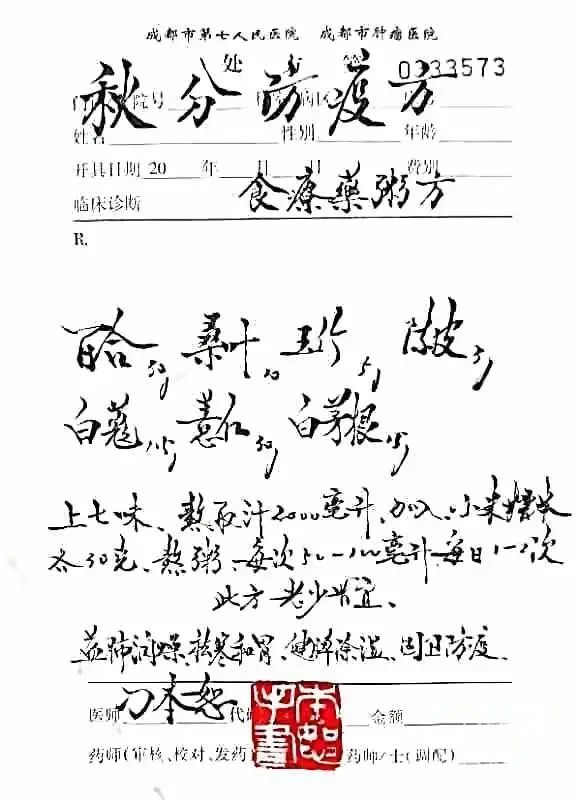 成都市第七人民医院 成都市肿瘤医院
处
0333573
秋分防疫方
院号
姓名 性别 年龄
开具日期 20 年 月 日 费别
食療藥粥方
临床诊断
R.
百合30g 桑叶10 玉竹15g 陈皮3g
白蔻1.5g 薏仁30g 白茅根15g
上七味、熬取汁2000毫升、加入小米糯米
各30克、熬粥、每次50-100毫升每日1-2次
此方老少皆宜、
益肺润燥、祛寒和胃、健脾除湿、固卫防疫、
医师 刁本恕 代码 金额
药师(审核、校对、发药) 药师/士(调配)